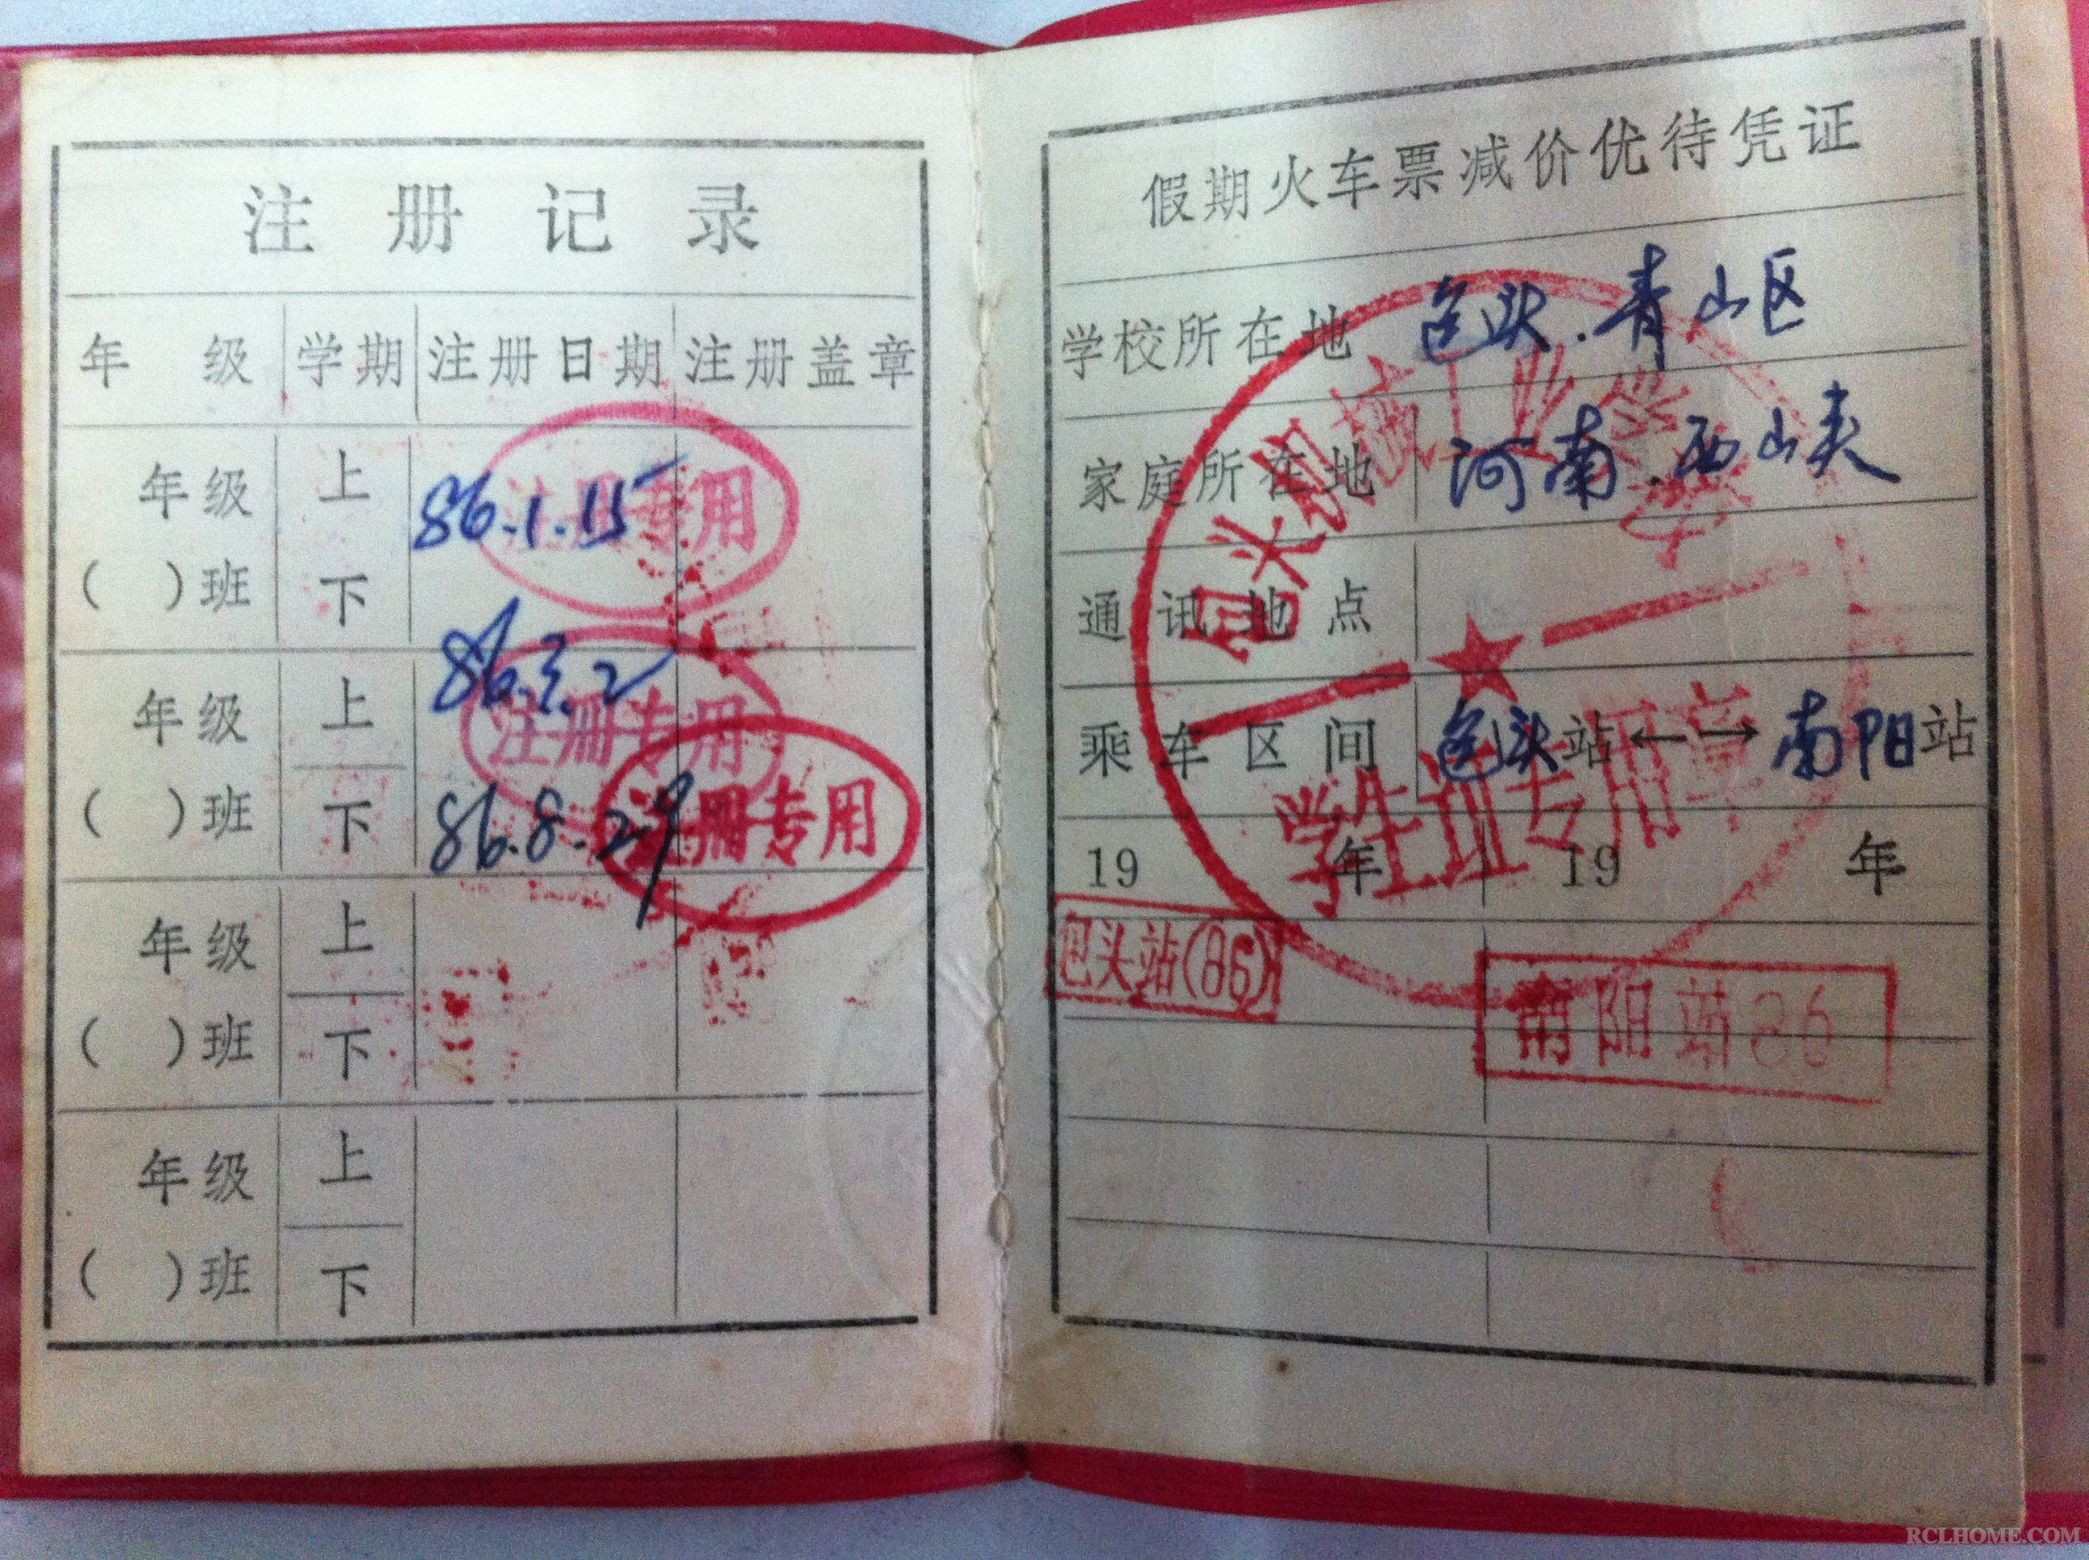 注册记录
年 级 学期 注册日期 注册盖章
年级 上 86.1.15 注册专用
( )班 下
年级 上 86.3.2 注册专用
( )班 下 86.8.29 注册专用
年级 上
( )班 下
年级 上
( )班 下
假期火车票减价优待凭证
学校所在地 包头.青山区
家庭所在地 河南.西峡
通讯地点
乘车区间 包头站←→南阳站
19 年 19 年
包头机械工业学校
学生证专用章
包头站(86)
南阳站86
RCLHOME.COM